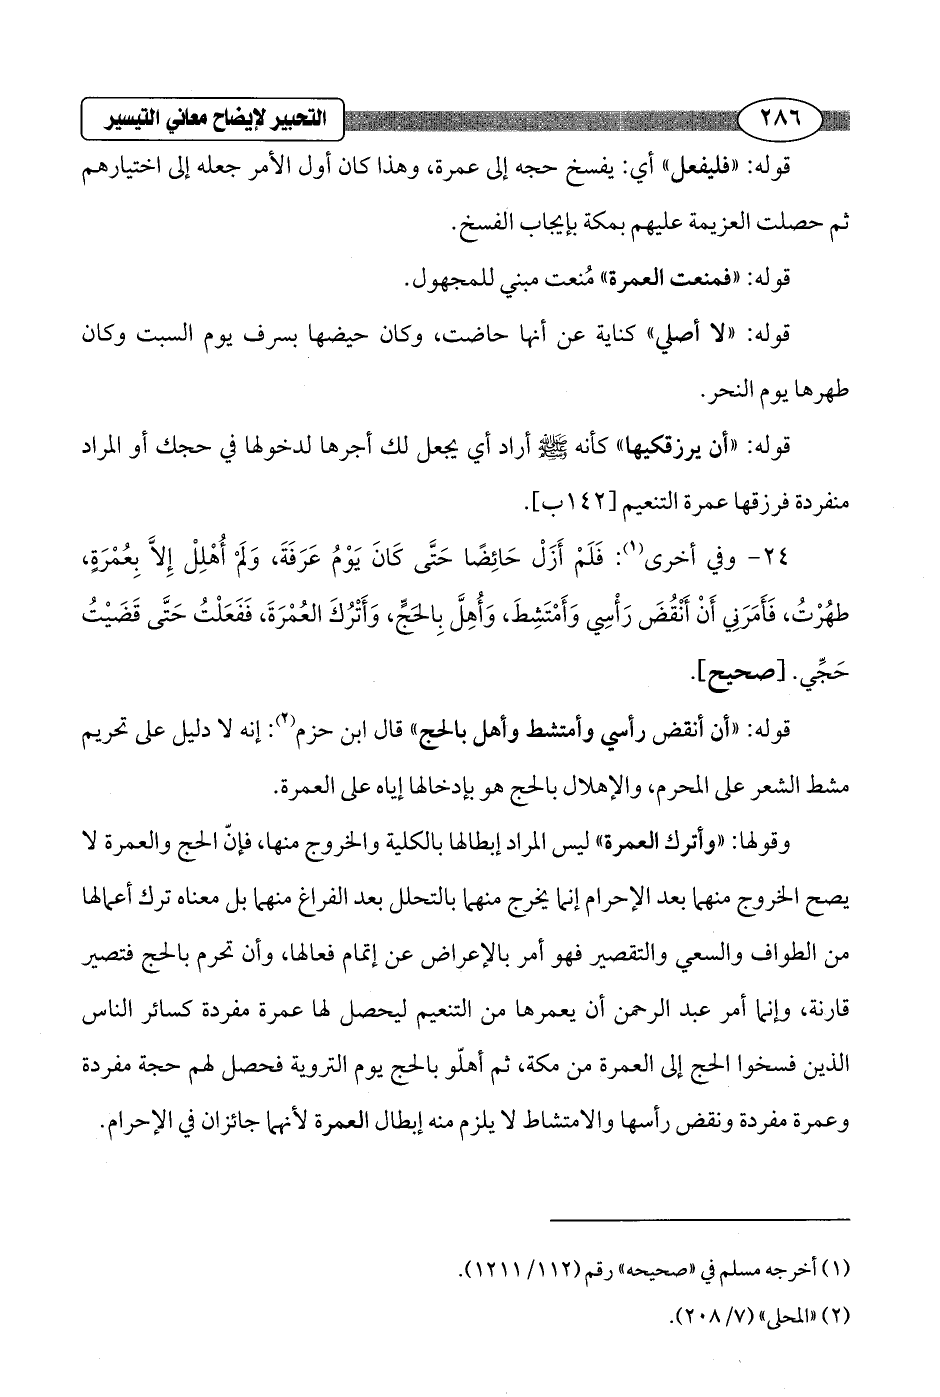 ٢٨٦
التحبير لإيضاح معاني التيسير
قوله: «فليفعل» أي: يفسخ حجه إلى عمرة، وهذا كان أول الأمر جعله إلى اختيارهم
ثم حصلت العزيمة عليهم بمكة بإيجاب الفسخ.
قوله: «فمنعت العمرة» مُنعت مبني للمجهول.
قوله: «لا أصلي» كناية عن أنها حاضت، وكان حيضها بسرف يوم السبت وكان
طهرها يوم النحر.
قوله: «أن يرزقكيها» كأنه ﷺ أراد أي يجعل لك أجرها لدخولها في حجك أو المراد
منفردة فرزقها عمرة التنعيم [١٤٢ب].
٢٤- وفي أخرى(١): فَلَمْ أَزَلْ حَائِضًا حَتَّى كَانَ يَوْمُ عَرَفَةَ، وَلَمْ أُهْلِلْ إِلاَّ بِعُمْرَةٍ،
طهُرْتُ، فَأَمَرَنِي أَنْ أَنْقُضَ رَأْسِي وَأَمْتَشِطَ، وَأُهِلَّ بِالحَجِّ، وَأَتْرُكَ العُمْرَةَ، فَفَعَلْتُ حَتَّى قَضَيْتُ
حَجِّي. [صحيح].
قوله: «أن أنقض رأسي وأمتشط وأهل بالحج» قال ابن حزم(٢): إنه لا دليل على تحريم
مشط الشعر على المحرم، والإهلال بالحج هو بإدخالها إياه على العمرة.
وقولها: «وأترك العمرة» ليس المراد إبطالها بالكلية والخروج منها، فإنّ الحج والعمرة لا
يصح الخروج منهما بعد الإحرام إنما يخرج منهما بالتحلل بعد الفراغ منهما بل معناه ترك أعمالها
من الطواف والسعي والتقصير فهو أمر بالإعراض عن إتمام فعالها، وأن تحرم بالحج فتصير
قارنة، وإنما أمر عبد الرحمن أن يعمرها من التنعيم ليحصل لها عمرة مفردة كسائر الناس
الذين فسخوا الحج إلى العمرة من مكة، ثم أهلّو بالحج يوم التروية فحصل لهم حجة مفردة
وعمرة مفردة ونقض رأسها والامتشاط لا يلزم منه إبطال العمرة لأنهما جائزان في الإحرام.
(١) أخرجه مسلم في «صحيحه» رقم (١١٢/ ١٢١١).
(٢) «المحلى» (٧/ ٢٠٨).